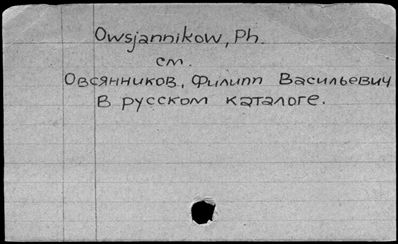 Owsjannikow, Ph.
см.
Овсянников, Филипп Васильевич
в русском каталоге.